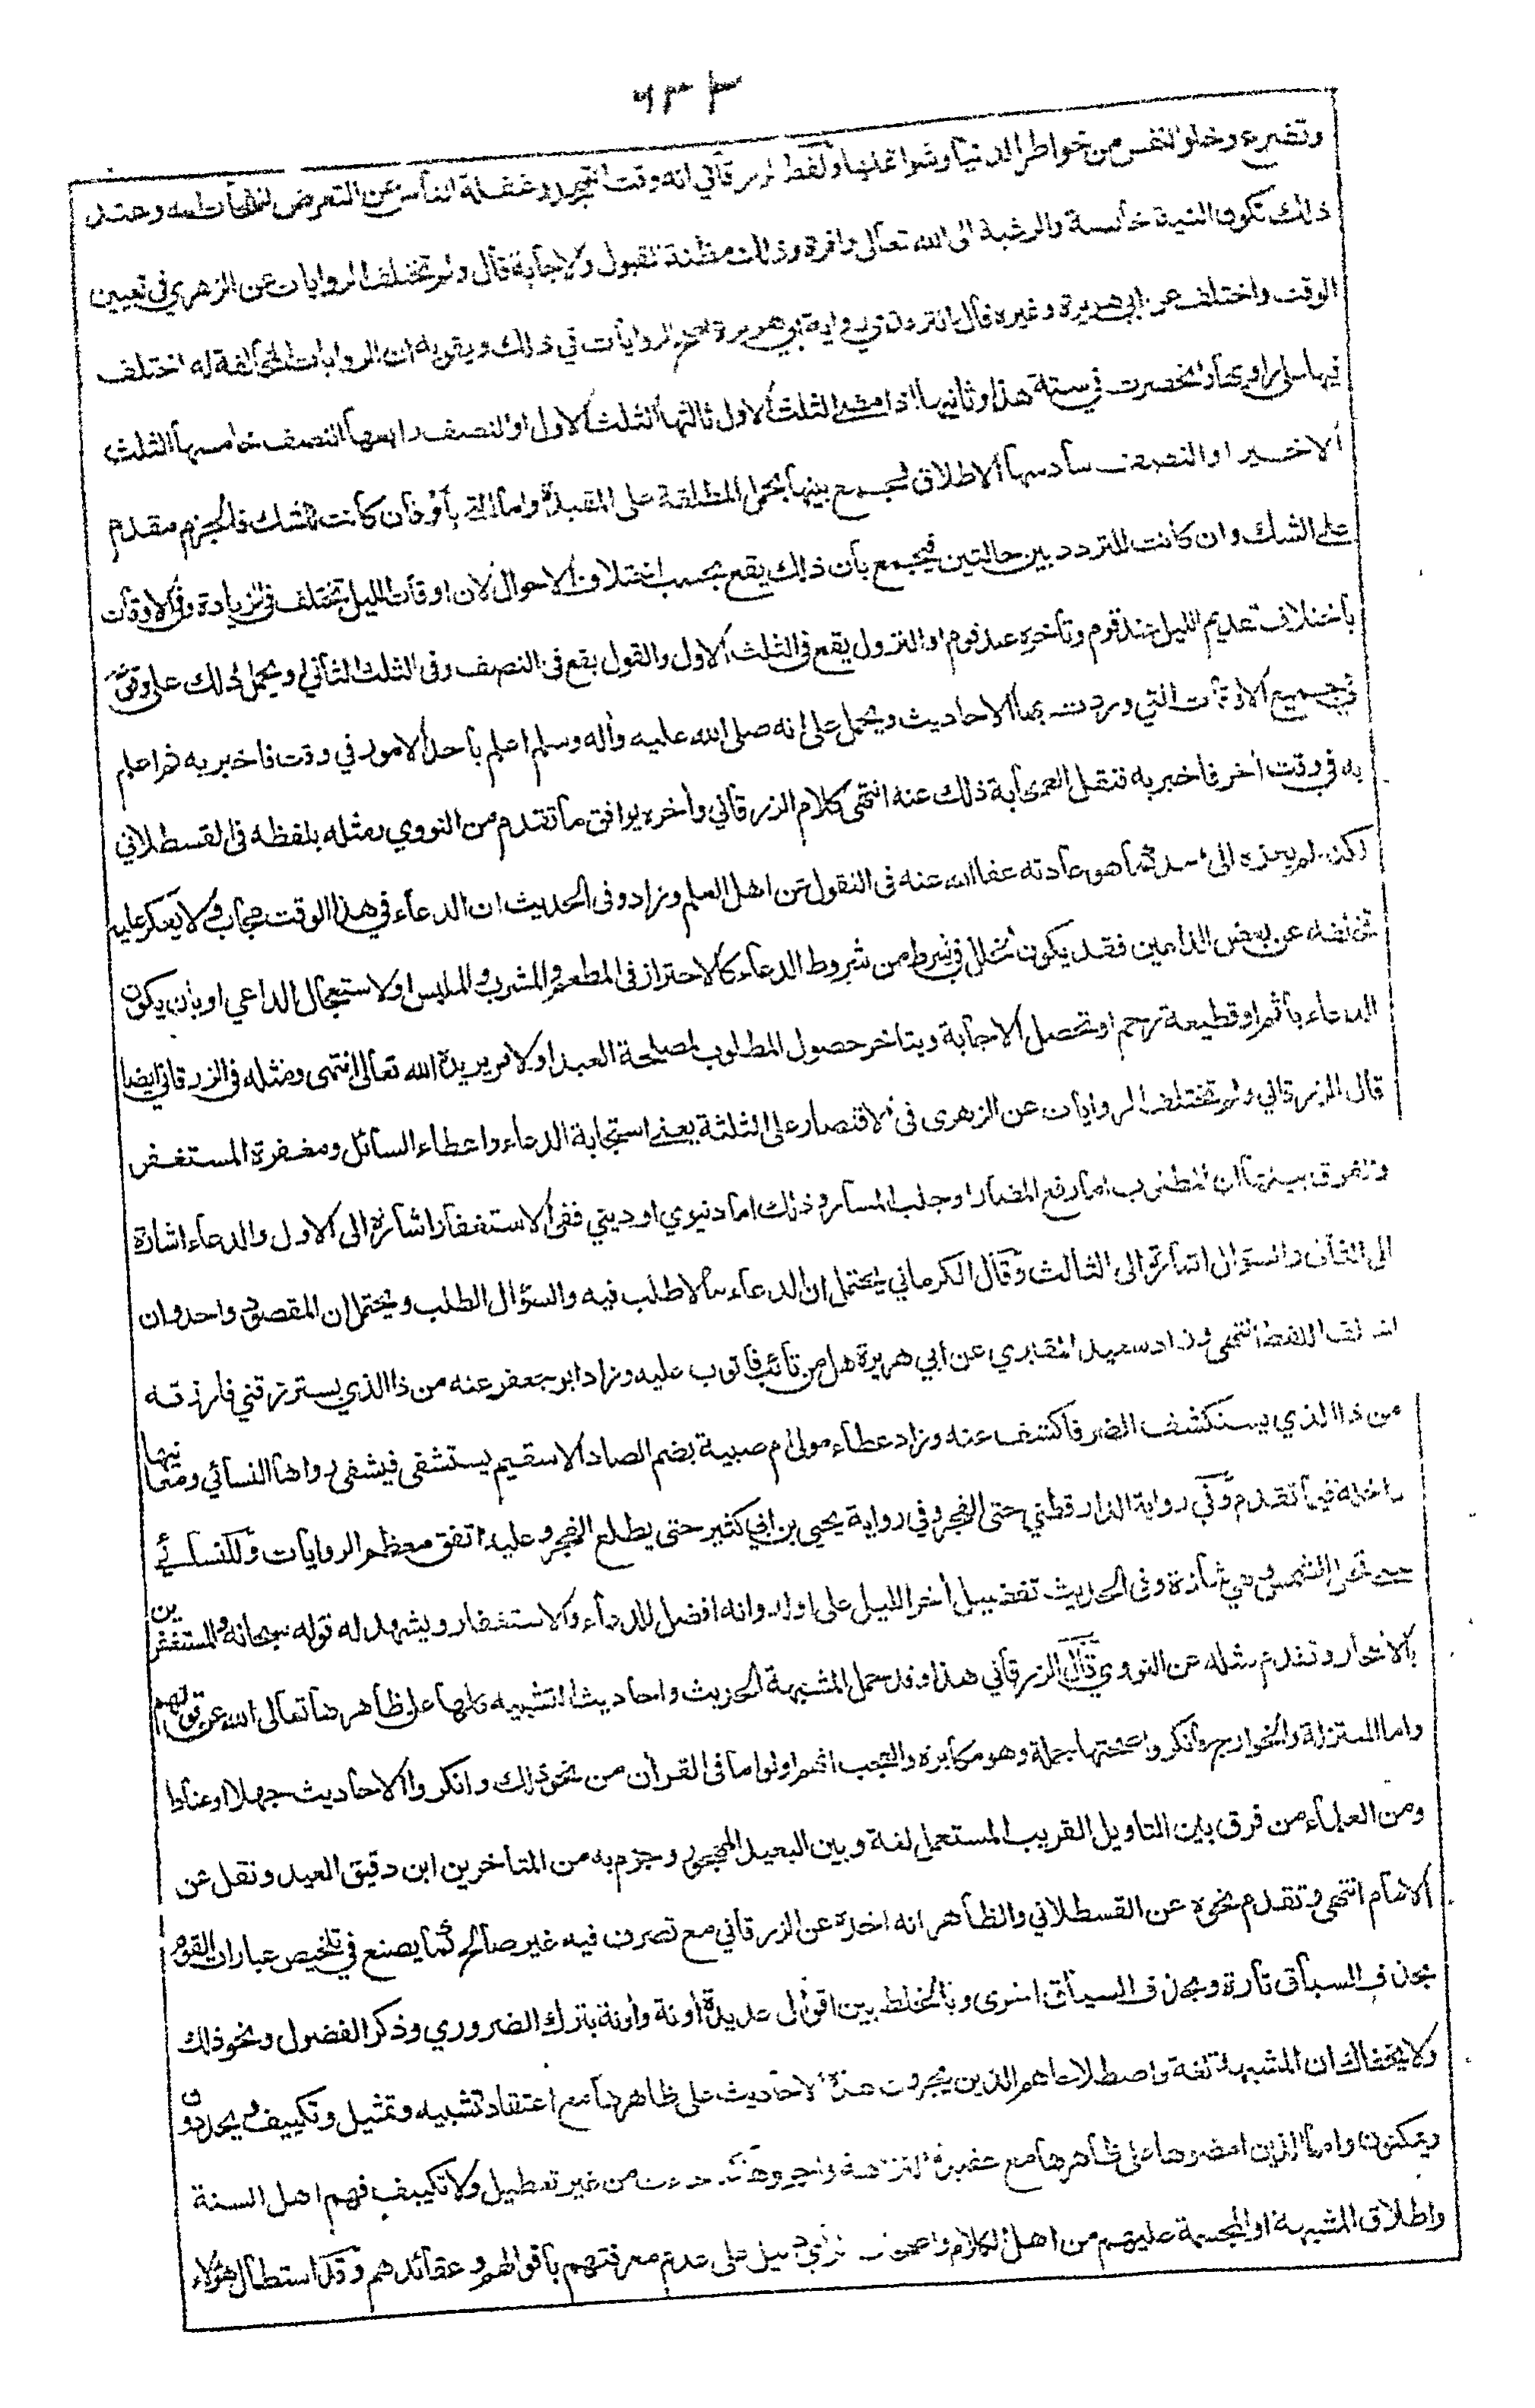 ٦٣٢
وتضرع وخلو النفس من خواطر الدنيا وشواغلها ولفظ الزرقاني انه وقت التهجد وغفلة الناس عن التعرض لنفحات الله وعند
ذلك تكون النية خالصة والرغبة الى الله تعالى وافرة وذلك مظنة القبول والاجابة قال ولم تختلف الروايات عن الزهري في تعيين
الوقت واختلف عن ابي هريرة وغيره قال الترمذي رواية ابي هريرة اصح الروايات في ذلك ويقويه ان الروايات المخالفة له اختلف
فيها على راويها وانحصرت في ستة هذا وثانيها اذا مضى الثلث الاول ثالثها الثلث الاول او النصف رابعها النصف خامسها الثلث
الاخير او النصف سادسها الاطلاق فجمع بينها بحمل المطلقة على المقيدة واما التي بأو فان كانت للشك فالجزم مقدم
على الشك وان كانت للتردد بين حالتين فيجمع بأن ذلك يقع بحسب اختلاف الاحوال لان اوقات الليل تختلف في الزيادة وفي الاوقات
بأختلاف تقديم الليل عند قوم وتأخره عند قوم او النزول يقع في الثلث الاول والقول يقع في النصف وفي الثلث الثاني او يحمل ذلك على وقوعه
في جميع الاوقات التي وردت بها الاحاديث ويحمل على انه صلى الله عليه وأله وسلم اعلم بأحد الامور في وقت فاخبر به ثم اعلم
به في وقت أخر فأخبر به فنقل الصحابة ذلك عنه انتهى كلام الزرقاني وأخره يوافق ما تقدم من النووي ومثله بلفظه في القسطلاني
لكن لم يعزه الى احد كما هو عادته عفا الله عنه في النقول عن اهل العلم وزاد وفي الحديث ان الدعاء في هذا الوقت مجاب ولا يعكر عليه
تخلفه عن بعض الداعين فقد يكون لخلل في شرط من شروط الدعاء كالاحتراز في المطعم والمشرب والملبس او لاستعجال الداعي او بأن يكون
الدعاء بأثم او قطيعة رحم او تحصل الاجابة ويتأخر حصول المطلوب لمصلحة العبد او لامر يريده الله تعالى انتهى ومثله في الزرقاني ايضا
قال الزرقاني ولم تختلف الروايات عن الزهري في الاقتصار على الثلثة يعني استجابة الدعاء واعطاء السائل ومغفرة المستغفر
والفرق بينها ان المطلوب اما رفع المضار او جلب المسار وذلك اما دنيوي او ديني ففي الاستغفار اشارة الى الاول والدعاء اشارة
الى الثاني والسؤال اشارة الى الثالث وقال الكرماني يحتمل ان الدعاء ما لا طلب فيه والسؤال الطلب ويحتمل ان المقصود واحد وان
اختلف اللفظ انتهى وزاد سعيد المقبري عن ابي هريرة هل من تائب فأتوب عليه وزاد ابو جعفر عنه من ذا الذي يسترزقني فارزقه
من ذا الذي يستكشف الضر فأكشف عنه وزاد عطاء مولى ام صبية بضم الصاد الا سقيم يستشفى فيشفى رواها النسائي ومعانيها
داخلة فيما تقدم وفي رواية الدارقطني حتى الفجر وفي رواية يحيى بن ابي كثير حتى يطلع الفجر وعليه اتفق معظم الروايات وللنسائي
حتى ترى الشمس وهي شاذة وفي الحديث تفضيل أخر الليل على اوله وانه افضل للدعاء والاستغفار ويشهد له قوله سبحانه والمستغفرين
بالاسحار وتقدم مثله عن النووي قال الزرقاني هذا وقد حمل المشبهة الحديث واحاديث التشبيه كلها على ظاهرها تعالى الله عن قولهم
واما المعتزلة والخوارج فأنكروا صحتها جملة وهو مكابرة والعجب انهم اولوا ما في القرأن من نحو ذلك وانكروا الاحاديث جهلا او عنادا
ومن العلماء من فرق بين التاويل القريب المستعمل لغة وبين البعيد المهجور وجزم به من المتاخرين ابن دقيق العيد ونقل عن
الامام انتهى وتقدم نحوه عن القسطلاني والظاهر انه اخذه عن الزرقاني مع تصرف فيه غير صالح كما يصنع في تلخيص عبارات القوم
بحذف السباق تارة وبحذف السياق اخرى وبالخلط بين اقوال عديدة أونة وأونة بترك الضروري وذكر الفضول ونحو ذلك
ولا يخفاك ان المشبهة لغة واصطلاحا هم الذين يجرون هذه الاحاديث على ظاهرها مع اعتقاد تشبيه وتمثيل وتكييف ويحددون
ويمكنون واما الذين امضوها على ظاهرها مع عقيدة النزاهة واجروها كما جاءت من غير تعطيل ولا تكييف فهم اهل السنة
واطلاق المشبهة او المجسمة عليهم من اهل الكلام واصحاب الرأي دليل على عدم معرفتهم بأقوالهم وعقائدهم وقد استطال هؤلاء